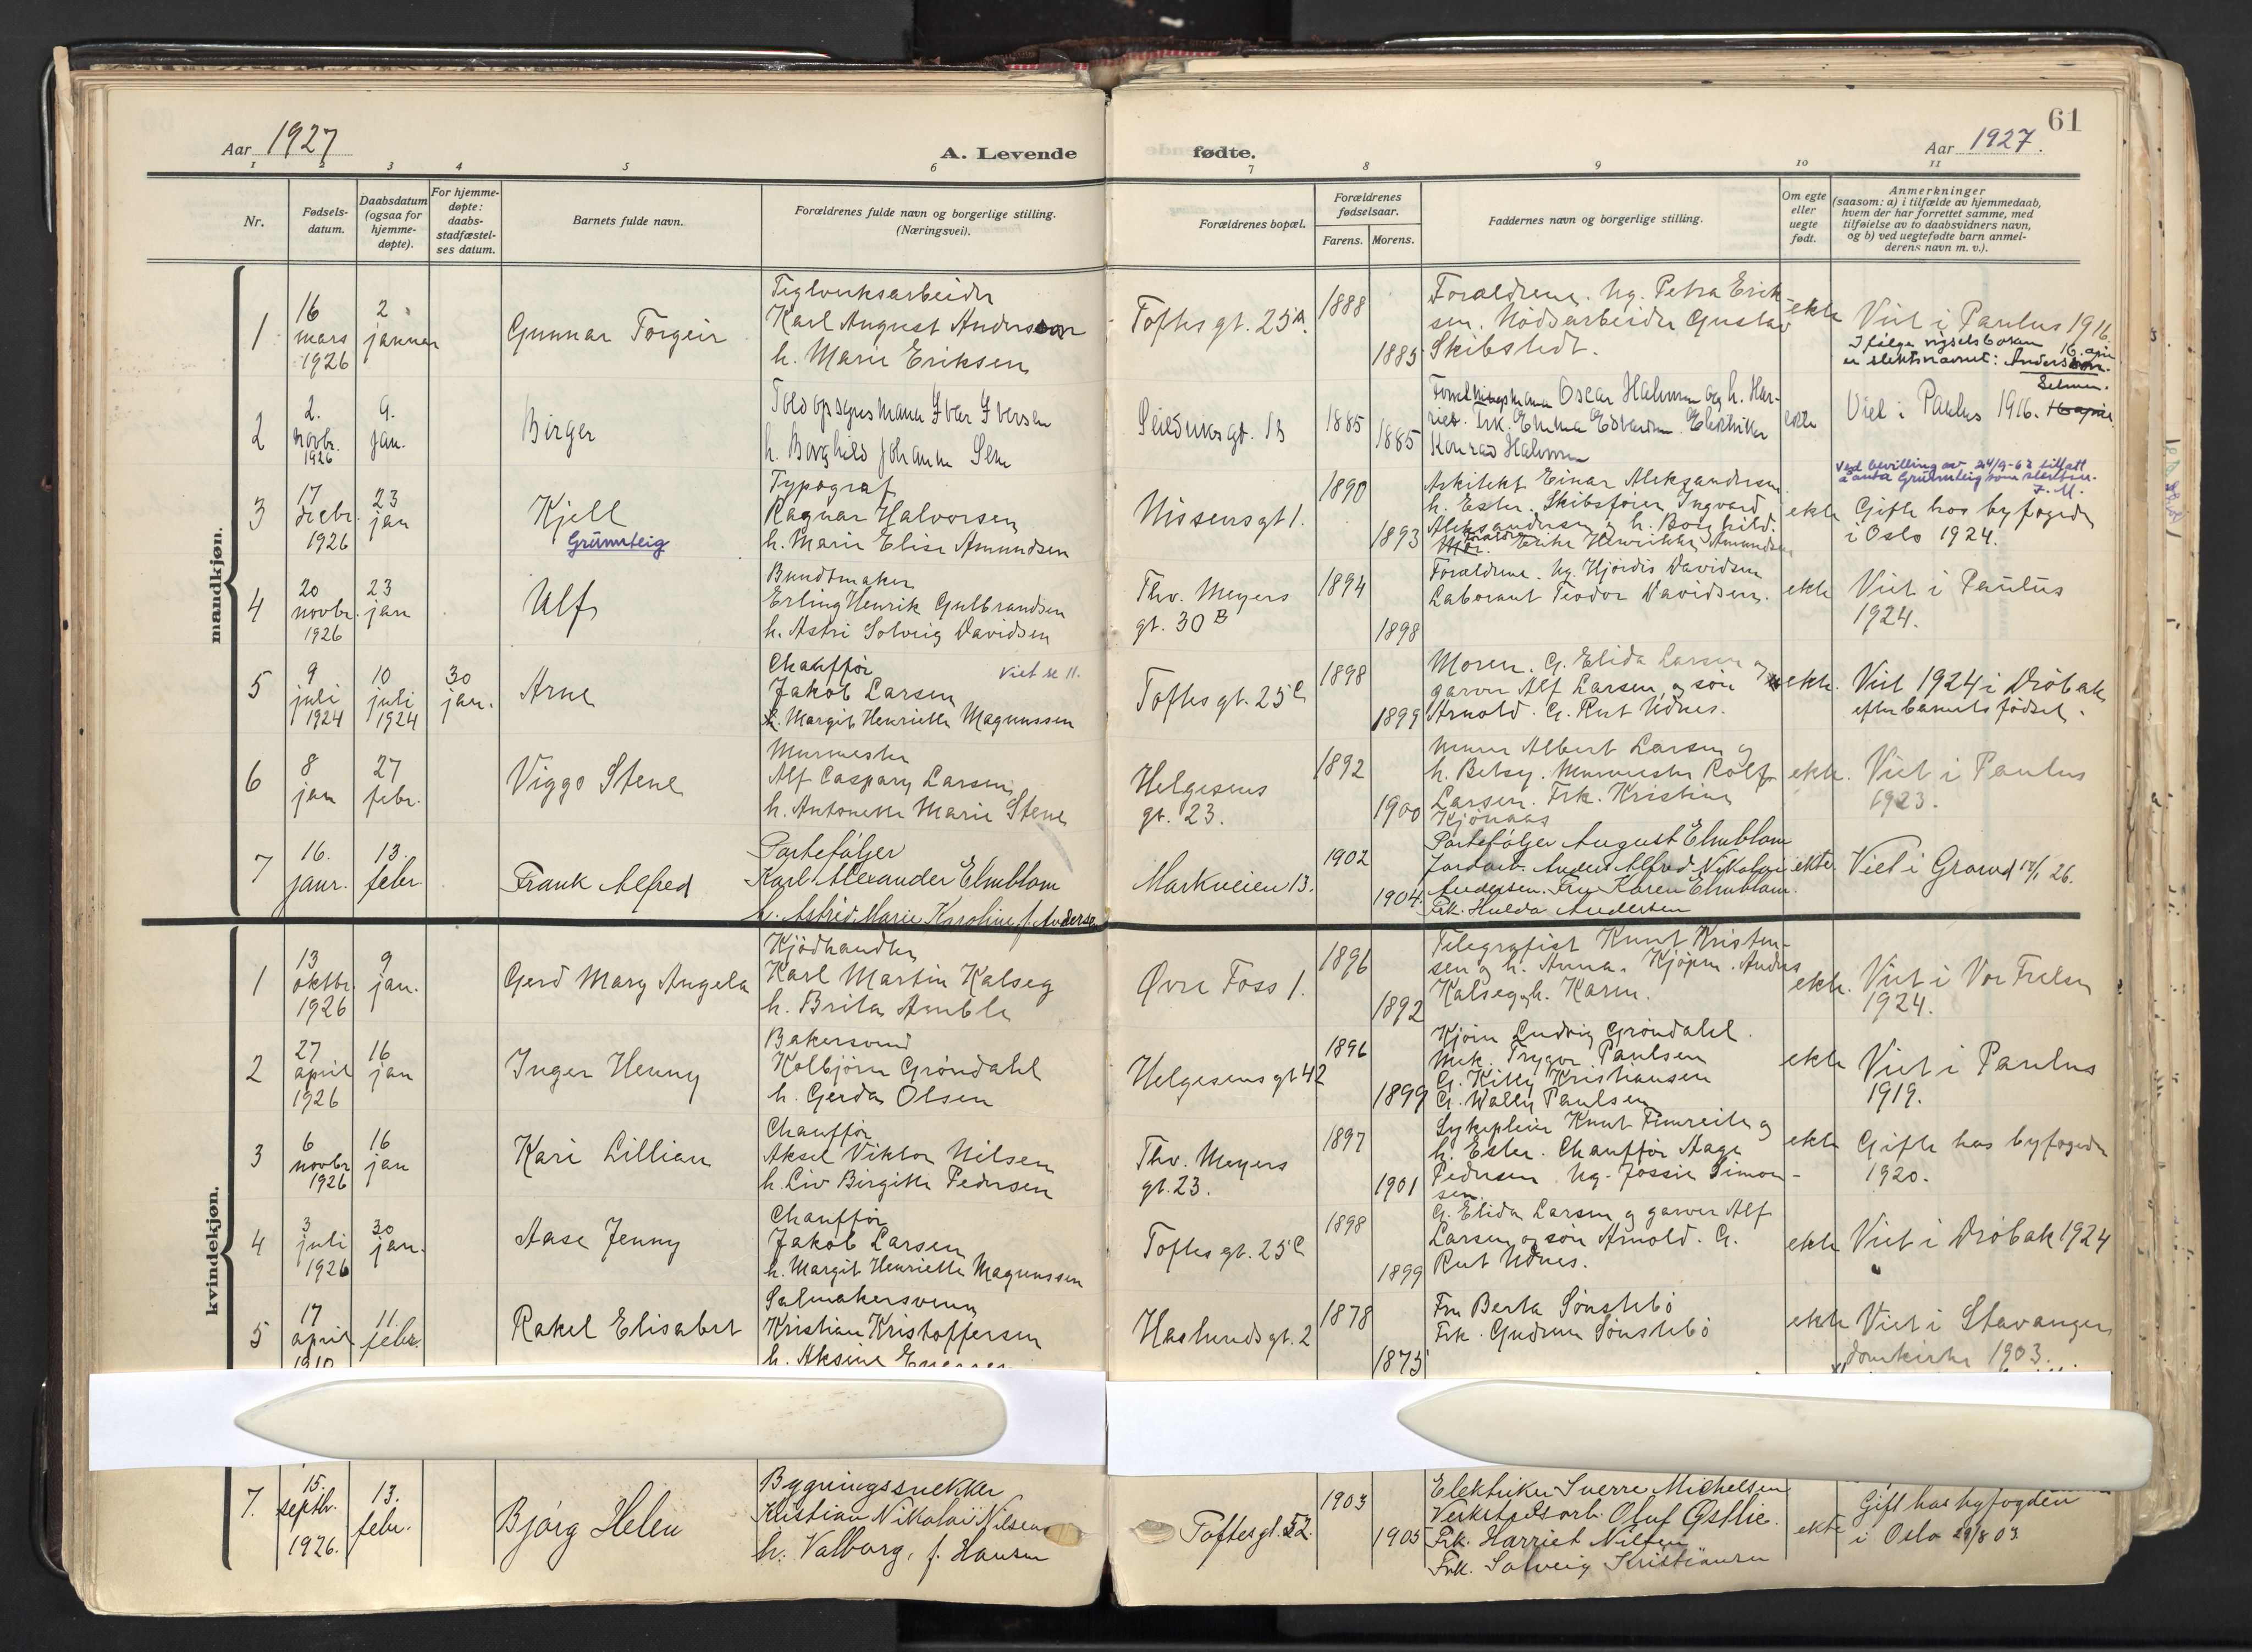 Aar 1927
A. Levende
1 2 3 4 5 6
Nr.
Fødsels-
datum.
Daabsdatum
(ogsaa for
hjemme-
døpte).
For hjemme-
døpte:
daabs-
stadfæstel-
ses datum.
Barnets fulde navn.
Forældrenes fulde navn og borgerlige stilling.
(Næringsvei).
mandkjøn.
1
16
mars
1926
2
januar
Gunnar Torgeir
Teglverksarbeider
Karl August Andersson
h. Marie Eriksen
2
2.
novbr.
1926
9.
jan.
Birger
Toldopsynsmann Iver Iversen
h. Borghild Johanne
3
17
decbr.
1926
23
jan
Kjell
Grümsteig
Typograf
Ragnar Halvorsen
h. Marie Elise Amundsen
4
20
novbr.
1926
23
jan
Ulf
Bundtmaker
Erling Henrik Gulbrandsen
h. Astri Solveig Davidsen
5
9
juli
1924
10
juli
1924
30
jan.
Arne
Chauffør
Viet se 11.
Jakob Larsen
h. Margit Henriette Magnussen
6
8
jan
27
febr.
Viggo Stene
Murmester
Alf Caspary Larsen
h. Antonette Marie Stene
7
16.
janr.
13.
febr.
Frank Alfred
Porteføljer
Karl Alexander Elmblom
h. Astrid Marie Karoline f. Andersen
kvindekjøn.
1
13
oktbr.
1926
9
jan.
Gerd Mary Angela
Kjødhandler
Karl Martin Kalseg
h. Brita Amble
2
27
april
1926
16
jan
Inger Henny
Bakersvend
Kolbjørn Grøndahl
h. Gerda Olsen
3
6
novbr
1926
16
jan
Kari Lillian
Chauffør
Aksel Viktor Nilsen
h. Liv Birgitte Pedersen
4
3
juli
1926
30
jan.
Aase Jenny
Chauffør
Jakob Larsen
h. Margit Henriette Magnussen
5
17
april
1910
11.
febr.
Rakel Elisabet
Salmakersvenn
Kristian Kristoffersen
h. Aksine
7.
15.
septbr.
1926.
13.
febr.
Bjørg Helen
Bygningssnekker
Kristian Nikolai Nilsen
h. Valborg, f. Hansen
61
fødte.
Aar 1927.
7 8 9 10 11
Forældrenes bopæl.
Forældrenes
fødselsaar.
Farens. Morens.
Faddernes navn og borgerlige stilling.
Om egte
eller
uegte
født.
Anmerkninger
(saasom: a) i tilfælde av hjemmedaab,
hvem der har forrettet samme, med
tilføielse av to daabsvidners navn,
og b) ved uegtefødte barn anmel-
derens navn m. v.).
Toftes gt. 25 a.
1888
1885
Forældrene. Ug. Petra Erik-
sen. Nødsarbeider Gustav
Skibstedt.
ekte
Viet i Paulus 1916.
Ifølge vigselsboken 16. april
er slektsnavnet: Andersson.
Seilduksgt. 13
1885
1885
Oscar Halvorsen og h. Har-
riet. Frk. Emma Edvardsen. Elektriker
Konrad Halvorsen
ekte
Viet i Paulus 1916. 16 april
Nissensgt 1.
1890
1893
Arkitekt Einar Aleksandersen
h. Ester. Skibsfører Ingvard
Aleksandersen og h. Borghild.
Erike Henrikke Amundsen
ekte
Ved bevilling av 24/9-62 tillatt
å anta Grümsteig som slektsn.
Gifte hos byfogden
i Oslo 1924.
Thv. Meyers
gt. 30 B
1894
1898
Forældrene. Ug. Hjørdis Davidsen
Laborant Teodor Davidsen.
ekte
Viet i Paulus
1924.
Toftes gt. 25 c
1898
1899
Moren. G. Elida Larsen og
garver Alf Larsen, og søn
Arnold. G. Rut Udnes.
ekte.
Viet 1924 i Drøbak
efter barnets fødsel.
Helgesens
gt. 23.
1892
1900
Murer Albert Larsen og
h. Betsy. Murmester Rolf
Larsen. Frk. Kristine
Kjønaas
ekte.
Viet i Paulus
1923.
Markveien 13.
1902
1904.
Porteføljer August Elmblom
Jordarb. Anders Alfred Nikolai
Andersen. Fru Karen Elmblom.
Frk. Hulda Andersen
ekte.
Viet i Grorud 17/1 26.
Øvre Foss 1.
1896
1892
Telegrafist Knut Kristen-
sen og h. Anna. Kjøpm. Anders
Kalseg og h. Karen.
ekte.
Viet i Vor Frelser
1924.
Helgesens gt 42
1896
1899
Kjører Ludvig Grøndahl.
Mek. Trygve Paulsen
G. Kitty Kristiansen
G. Wally Paulsen
ekte
Viet i Paulus
1919.
Thv. Meyers
gt. 23.
1897
1901
Sykepleier Knut Timreite og
h. Ester. Chauffør Aage
Pedersen. Ug. Jossie Simon-
sen.
ekte
Gifte hos byfogden
1920.
Toftes gt. 25 c
1898
1899
G. Elida Larsen og garver Alf
Larsen og søn Arnold. G.
Rut Udnes.
ekte
Viet i Drøbak 1924
Haslunds gt. 2
1878
1875
Fru Berta Sønstebø
Frk. Gudrun Sønstebø
ekte
Viet i Stavanger
domkirke 1903.
Toftesgt. 52.
1903
1905
Elektriker Sverre Michelsen
Verkstedsarb. Oluf Østlie.
Frk. Harriet Nilsen
Frk. Solveig Kristiansen
ekte
Gift hos byfogden
i Oslo